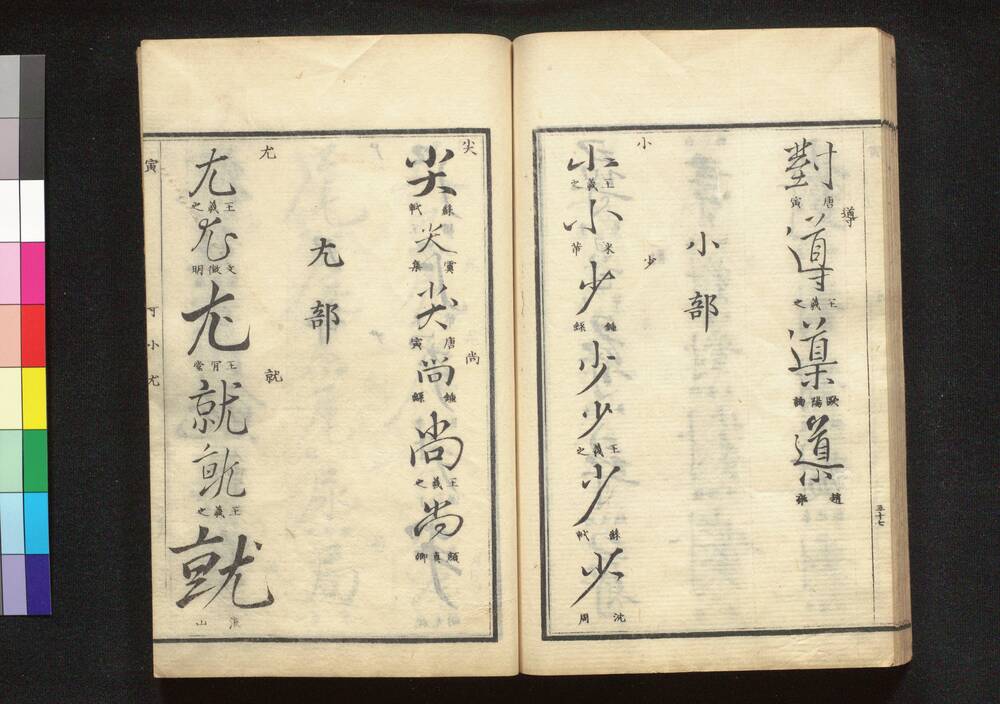 對
唐寅
導
導
王羲之
導
歐陽詢
導
趙
五十七
小部
小
小
王羲之
小
米芾
少
少
鍾繇
少
少
王羲之
少
蘇軾
少
沈周
尖
尖
蘇軾
尖
虞集
尖
唐寅
尚
尚
鍾繇
尚
王羲之
尚
顏真卿
尢部
尤
尤
王羲之
尤
文徵明
尤
王甯堂
就
就
就
王羲之
就
山
寅
寸小尢